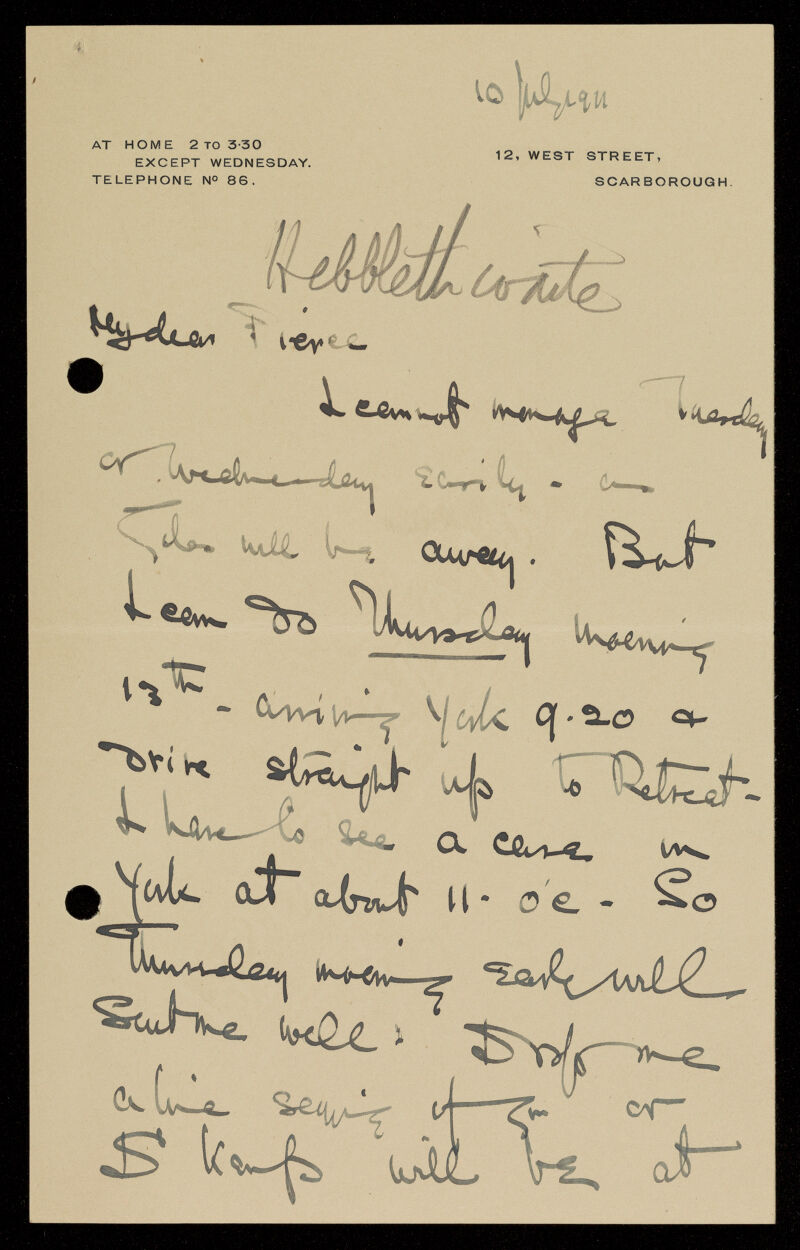 10 July 1911
AT HOME 2 TO 3·30
EXCEPT WEDNESDAY.
TELEPHONE Nº 86.
12, WEST STREET,
SCARBOROUGH.
Hebblethwaite
My dear Pierce
I cannot manage Tuesday
or Wednesday easily - as
will be away. But
I can do Thursday morning
13th - arriving York 9.20 &
drive straight up to Retreat -
I have to see a case in
York at about 11. o'c - So
Thursday morning early will
Suit me well: Drop me
a line saying if you or
Dr Kemp will be at